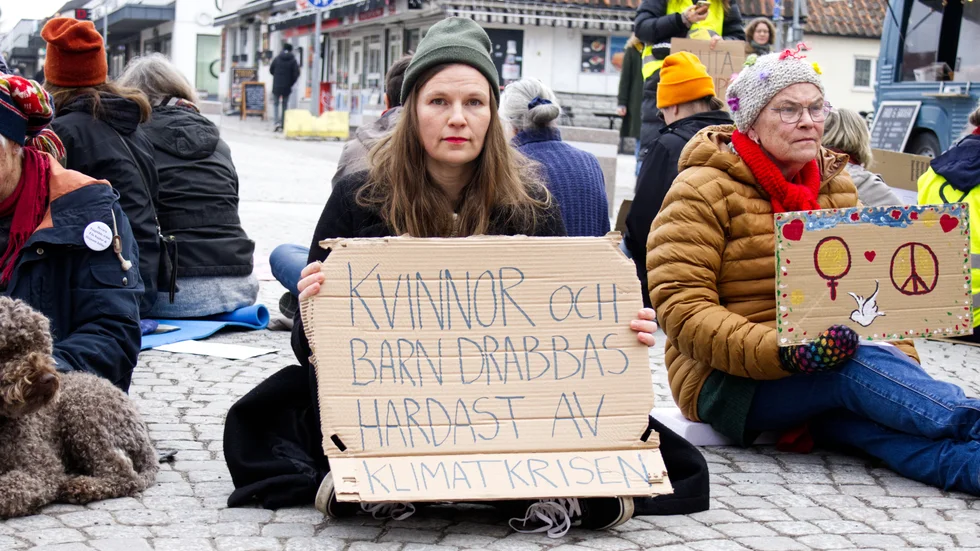 KVINNOR OCH
BARN DRABBAS
HARDAST AV
KLIMATKRISEN